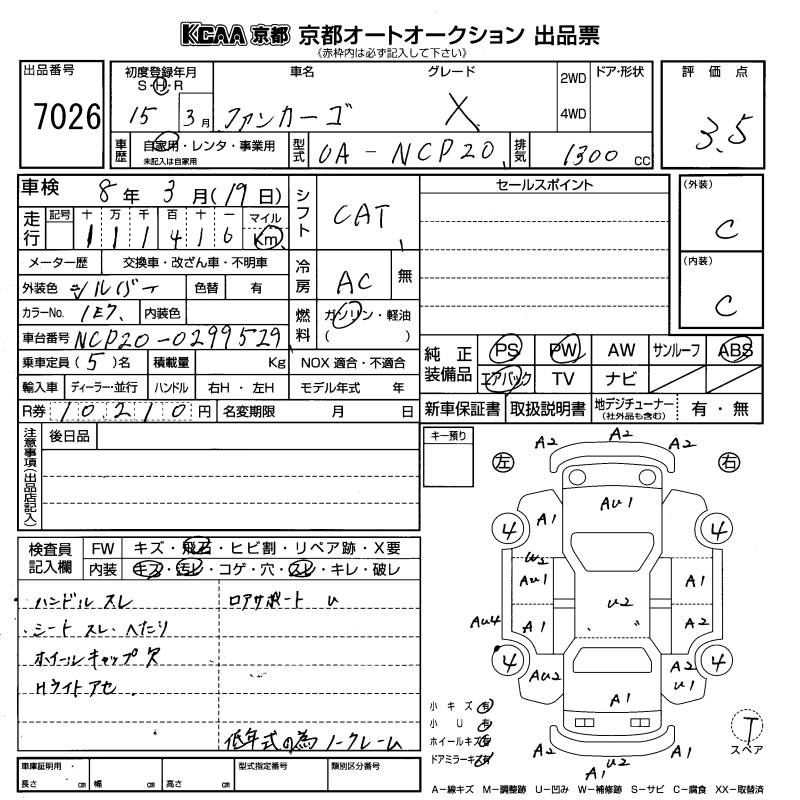 KCAA 京都 京都オートオークション 出品票
(赤枠内は必ず記入して下さい)
出品番号
7026
初度登録年月
S・H・R
15 3月
車名
ファンカーゴ
グレード
X
2WD
4WD
ドア・形状
評価点
3.5
車歴
自家用・レンタ・事業用
未記入は自家用
型式
UA-NCP20
排気
1300 CC
車検
8年 3月(19日)
走行
記号 十 万 千 百 十 一 マイル
1 1 1 4 1 6 Km
シフト
CAT
冷房
AC
無
燃料
ガソリン・軽油
( )
メーター歴 交換車・改ざん車・不明車
外装色 シルバー 色替 有
カラーNo. 1E7 内装色
車台番号 NCP20-0299529
乗車定員(5)名 積載量 Kg NOX 適合・不適合
輸入車 ディーラー・並行 ハンドル 右H・左H モデル年式 年
R券 10210円 名変期限 月 日
セールスポイント
(外装)
C
(内装)
C
純正装備品
PS PW AW サンルーフ ABS
エアバック TV ナビ
新車保証書 取扱説明書 地デジチューナー (社外品も含む) 有・無
注意事項(出品店記入)
後日品
キー預り
検査員記入欄
FW キズ・飛石・ヒビ割・リペア跡・X要
内装 キズ・汚レ・コゲ・穴・スレ・キレ・破レ
ハンドル スレ
ロアサポート U
シート スレ、へたり
ホイールキャップ欠
Hライトアセ
低年式の為ノークレーム
車庫証明用
長さ cm 幅 cm 高さ cm
型式指定番号
類別区分番号
左 右
A2 A2 A2
AU1
4 A1 4
U2
AU1 A1
U2
AU4 A1 A2
4 4
AU2 A2
U1
A1
A2 U2 A2
A1
小キズ 有
小U 有
ホイールキズ 有
ドアミラーキズ 有
T
スペア
A-線キズ M-調整跡 U-凹み W-補修跡 S-サビ C-腐食 XX-取替済